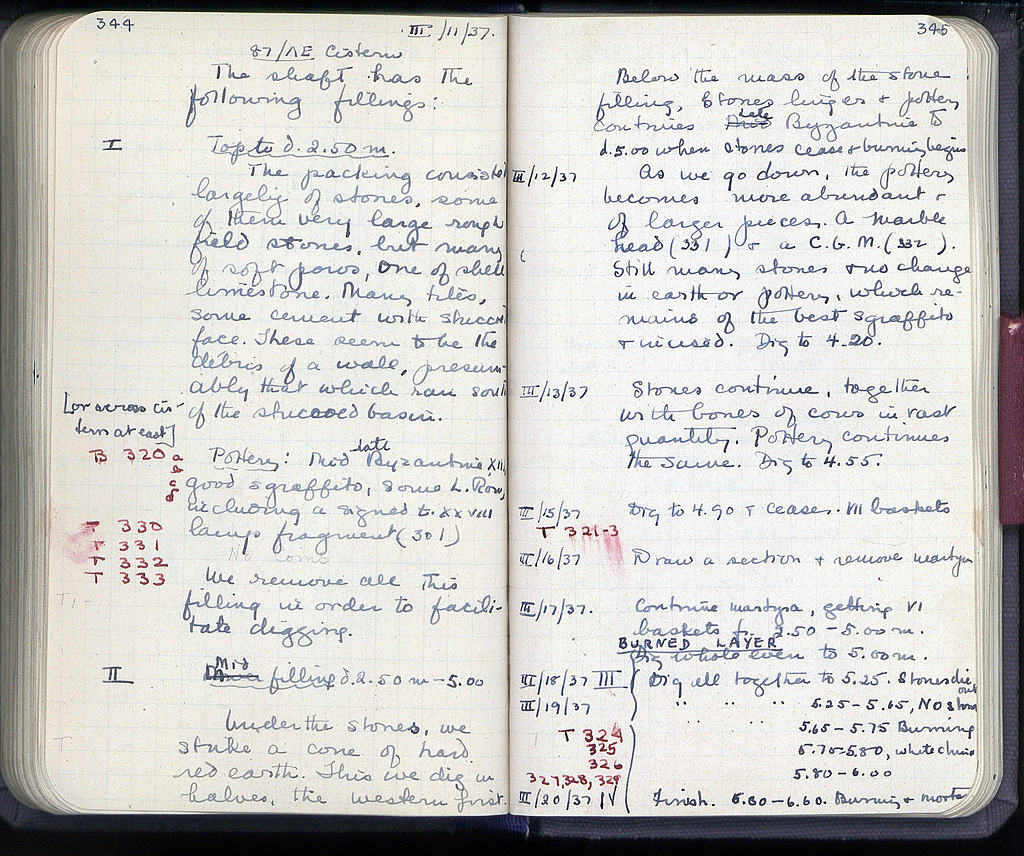 344
III/11/37.
87/ΛE Cistern
The shaft has the
following fillings:
I Top to d. 2.50 m.
The packing consisted
largely of stones, some
of them very large rough
field stones, but many
of soft poros, one of shell
limestone. Many tiles,
some cement with stucco
face. These seem to be the
débris of a wall, presum-
ably that which ran south
[or across cis-
tern at east]
of the stuccoed basin.
B 320 a
b
c
d
Pottery: Mid late Byzantine, XII,
good sgraffito, some L. Rom,
including a signed t. XXVIII
lamp fragment (301)
No coins
T 330
T 331
T 332
T 333
We remove all this
filling in order to facili-
tate digging.
II Mid filling d. 2.50 m - 5.00
Under the stones, we
strike a cone of hard
red earth. This we dig in
halves, the western first.
345
Below the mass of the stone
filling, Stones linger & pottery
continues Mid late Byzantine to
d. 5.00 when stones cease & burning begins
III/12/37 As we go down, the pottery
becomes more abundant &
of larger pieces. A marble
head (331) & a C.G.M. (332).
Still many stones & no change
in earth or pottery, which re-
mains of the best sgraffito
& incised. Dig to 4.20.
III/13/37 Stones continue, together
with bones of cows in vast
quantity. Pottery continues
the same. Dig to 4.55.
III/15/37 Dig to 4.90 & cease. VII baskets
T 321-3
III/16/37 Draw a section & remove martyra
III/17/37. Continue martyra, getting VI
baskets f. 2.50 - 5.00 m.
BURNED LAYER
Dig whole even to 5.00 m.
III/18/37 III Dig all together to 5.25. Stones die out
III/19/37 " " " " 5.25 - 5.65, No stones
T 324
5.65 - 5.75 Burning
325
5.70-5.80, white
326
5.80 - 6.00
327, 328, 329
III/20/37 IV Finish. 6.00 - 6.60. Burning &